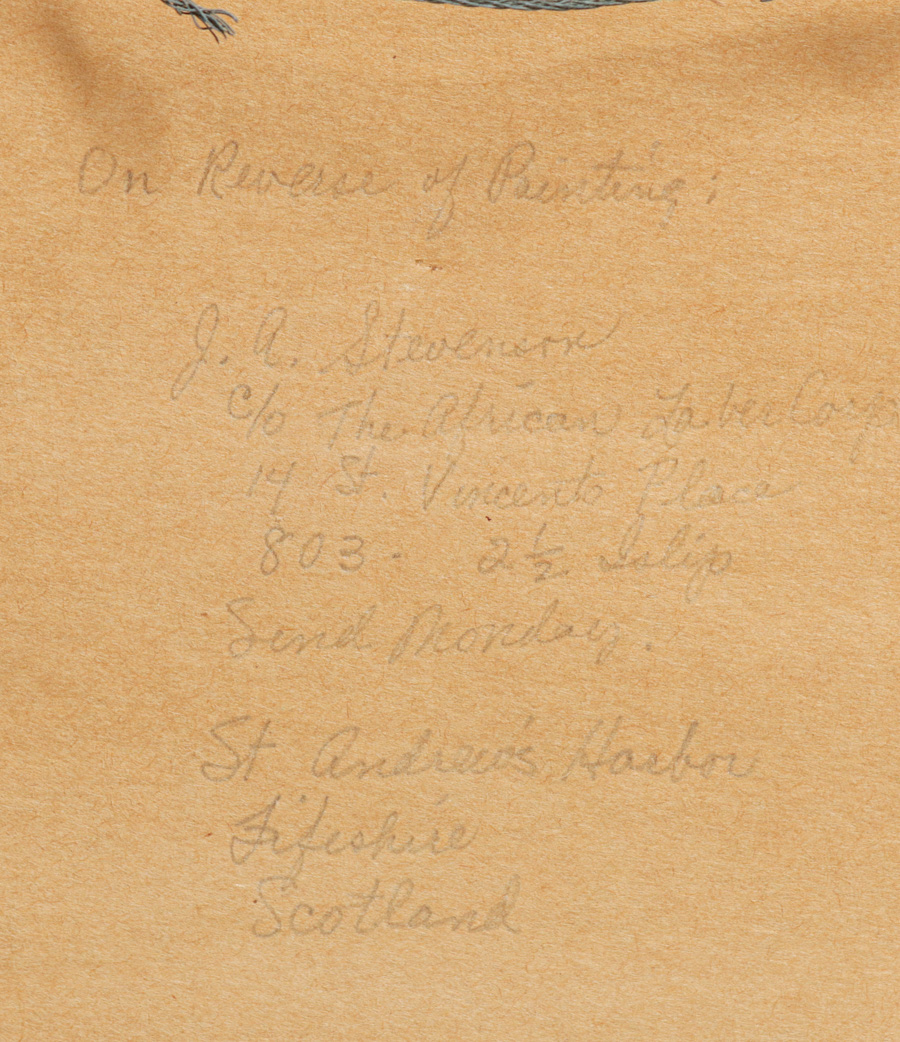 On Reverse of Painting;
J. A. Stevenson
c/o The African Corp
14 St. Vincents Place
803 - 2½ Islip
Send Monday.
St Andrew's Harbor
Fifeshire
Scotland